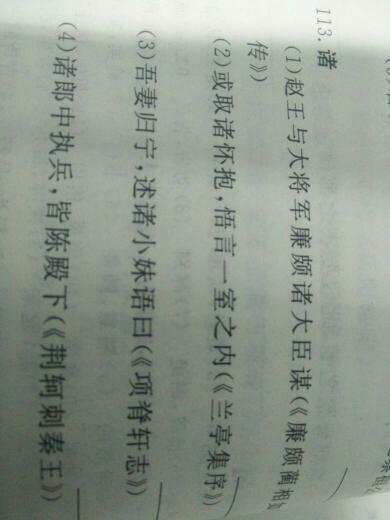 113. 诸
(1)赵王与大将军廉颇诸大臣谋(《廉颇蔺相如
传》)
(2)或取诸怀抱,悟言一室之内(《兰亭集序》)
(3)吾妻归宁,述诸小妹语曰(《项脊轩志》)
(4)诸郎中执兵,皆陈殿下(《荆轲刺秦王》)